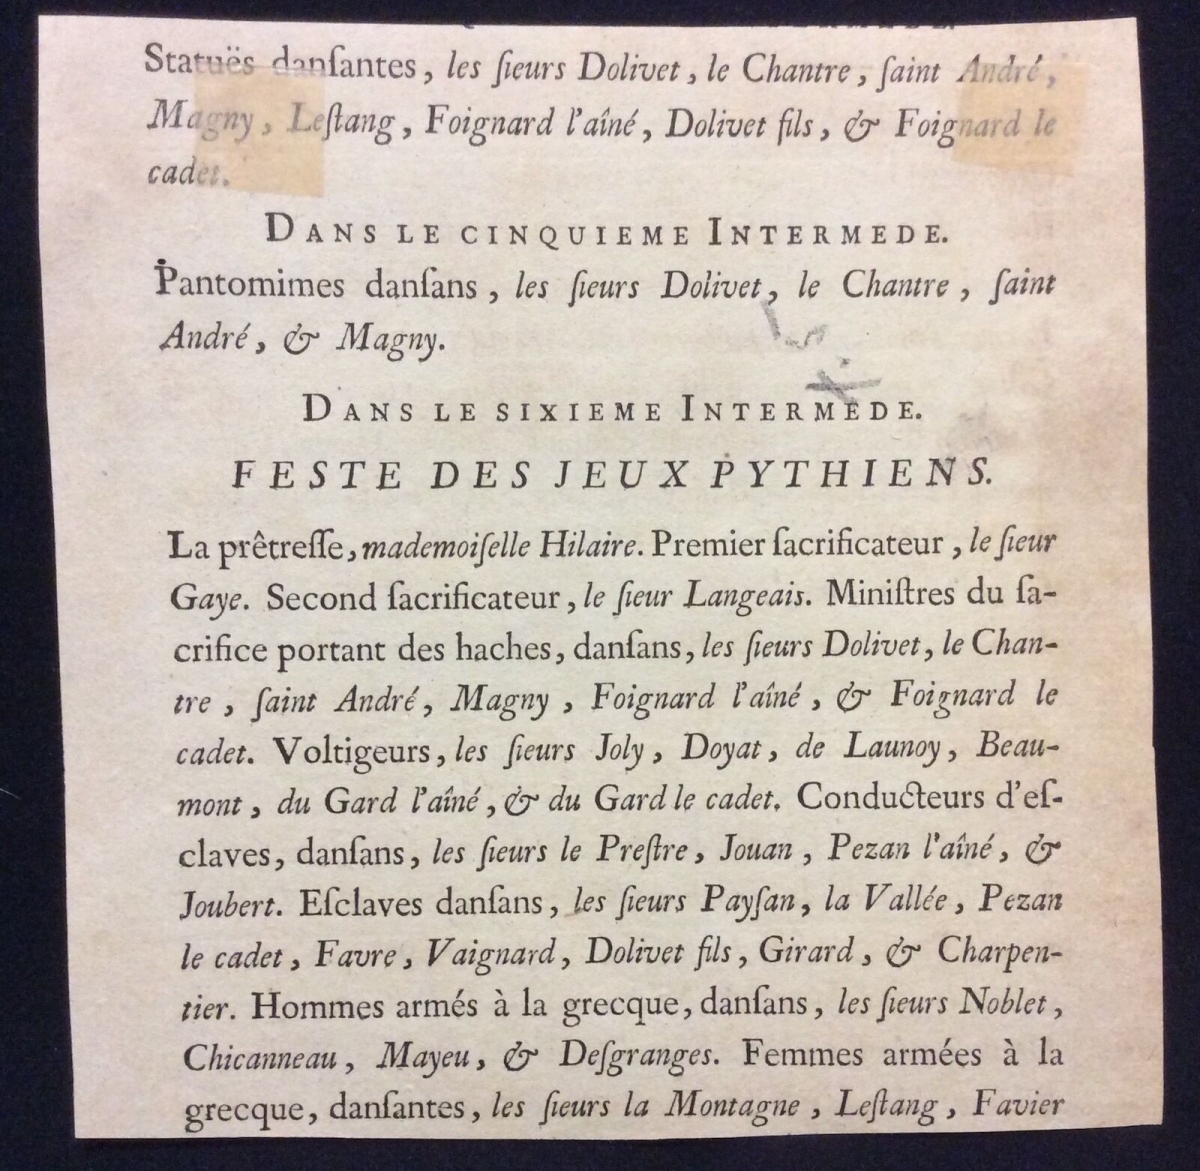 Statuës danſantes, les ſieurs Dolivet, le Chantre, ſaint André,
Magny, Leſtang, Foignard l'aîné, Dolivet fils, & Foignard le
cadet.
DANS LE CINQUIEME INTERMEDE.
Pantomimes danſans, les ſieurs Dolivet, le Chantre, ſaint
André, & Magny.
DANS LE SIXIEME INTERMEDE.
FESTE DES JEUX PYTHIENS.
La prêtreſſe, mademoiſelle Hilaire. Premier ſacrificateur, le ſieur
Gaye. Second ſacrificateur, le ſieur Langeais. Miniſtres du ſa-
crifice portant des haches, danſans, les ſieurs Dolivet, le Chan-
tre, ſaint André, Magny, Foignard l'aîné, & Foignard le
cadet. Voltigeurs, les ſieurs Joly, Doyat, de Launoy, Beau-
mont, du Gard l'aîné, & du Gard le cadet. Conducteurs d'eſ-
claves, danſans, les ſieurs le Preſtre, Jouan, Pezan l'aîné, &
Joubert. Eſclaves danſans, les ſieurs Payſan, la Vallée, Pezan
le cadet, Favre, Vaignard, Dolivet fils, Girard, & Charpen-
tier. Hommes armés à la grecque, danſans, les ſieurs Noblet,
Chicanneau, Mayeu, & Deſgranges. Femmes armées à la
grecque, danſantes, les ſieurs la Montagne, Leſtang, Favier